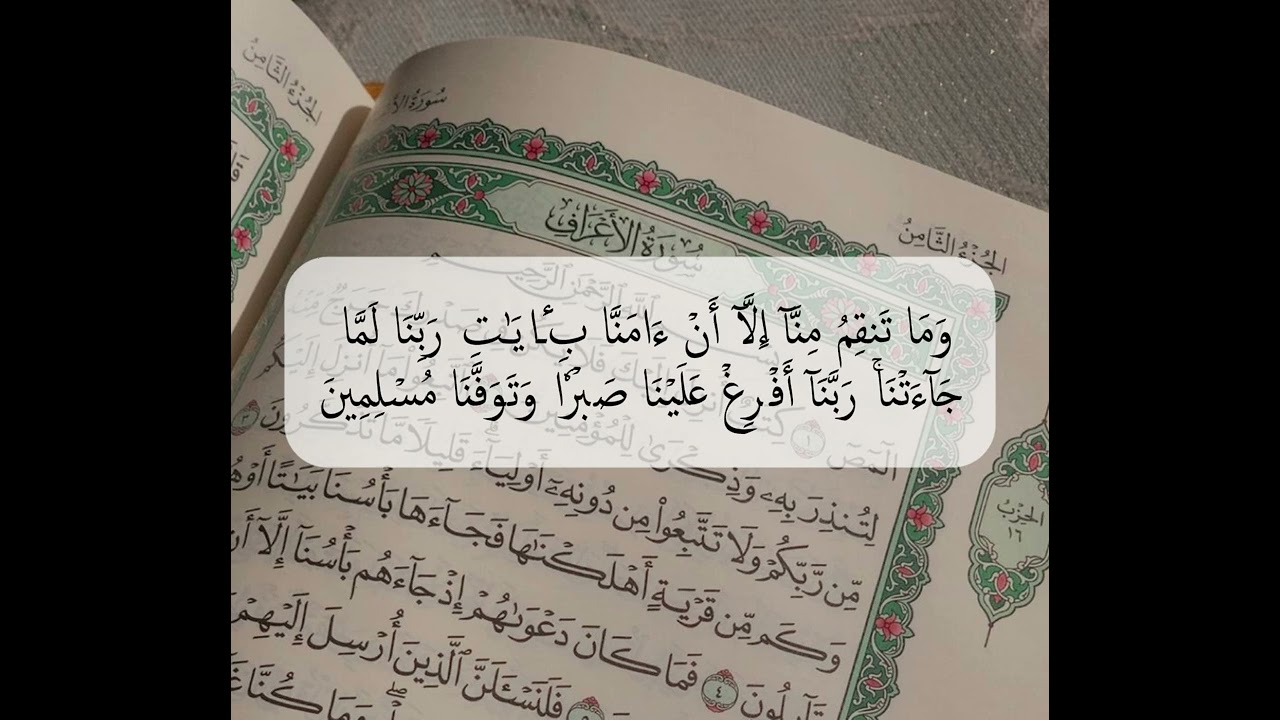 الجُزْءُ الثَّامِنُ
سُورَةُ
الجُزْءُ الثَّامِنُ
سُورَةُ الأَعْرَافِ
وَمَا تَنقِمُ مِنَّآ إِلَّآ أَنْ ءَامَنَّا بِـَٔايَـٰتِ رَبِّنَا لَمَّا
جَآءَتْنَا ۚ رَبَّنَآ أَفْرِغْ عَلَيْنَا صَبْرًا وَتَوَفَّنَا مُسْلِمِينَ
الٓمٓصٓ ١ كِتَٰبٌ
لِتُنذِرَ بِهِۦ وَذِكْرَىٰ لِلْمُؤْمِنِينَ
مِّن رَّبِّكُمْ وَلَا تَتَّبِعُوا۟ مِن دُونِهِۦٓ أَوْلِيَآءَ ۗ قَلِيلًا مَّا تَذَكَّرُونَ ٣
وَكَم مِّن قَرْيَةٍ أَهْلَكْنَٰهَا فَجَآءَهَا بَأْسُنَا بَيَٰتًا أَوْ
فَمَا كَانَ دَعْوَىٰهُمْ إِذْ جَآءَهُم بَأْسُنَآ إِلَّآ أَن
٤
فَلَنَسْـَٔلَنَّ ٱلَّذِينَ أُرْسِلَ إِلَيْهِمْ
وَمَا كُنَّا
الحِزْبُ
١٦